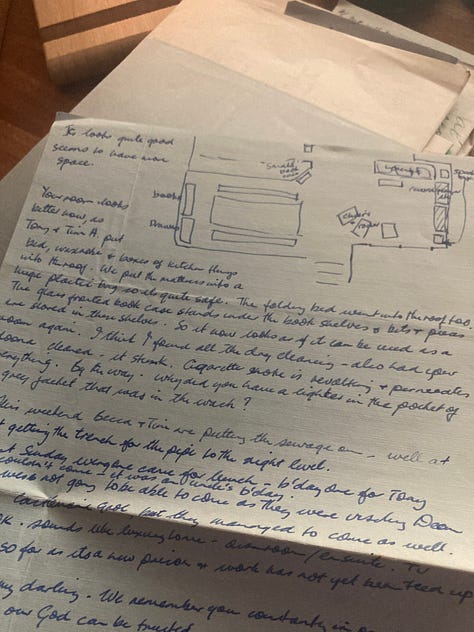 It looks quite good
seems to have more
space.
Small
book
case
books
Drawers
Chairs
Your room looks
better now, as
Tony & Tim A put
bed, wardrobe & boxes of kitchen things
into the roof. We put the mattress into a
huge plastic bag so its quite safe. The folding bed went into the roof too.
The glass fronted book case stands under the book shelves & bits & pieces
are stored in these shelves. So it now looks as if it can be used as a
room again. I think I found all the dry cleaning – also had your
cleaned – it stank. Cigarette smoke is revolting & permeates
everything! By the way – why did you have a lighter in the pocket of
grey jacket that was in the wash?
This weekend Becca & Tim are putting the sewage on – well at
getting the trench for the pipe to the right level.
Sunday everyone came for lunch – b'day one for Tony
couldn't come – it was an uncle's b'day.
were not going to be able to come as they were visiting Dean
but they managed to come as well.
sounds like luxury home – own room/ensuite. TV
so far as its a new prison & work has not yet been teed up
darling. We remember you constantly in
our God can be trusted